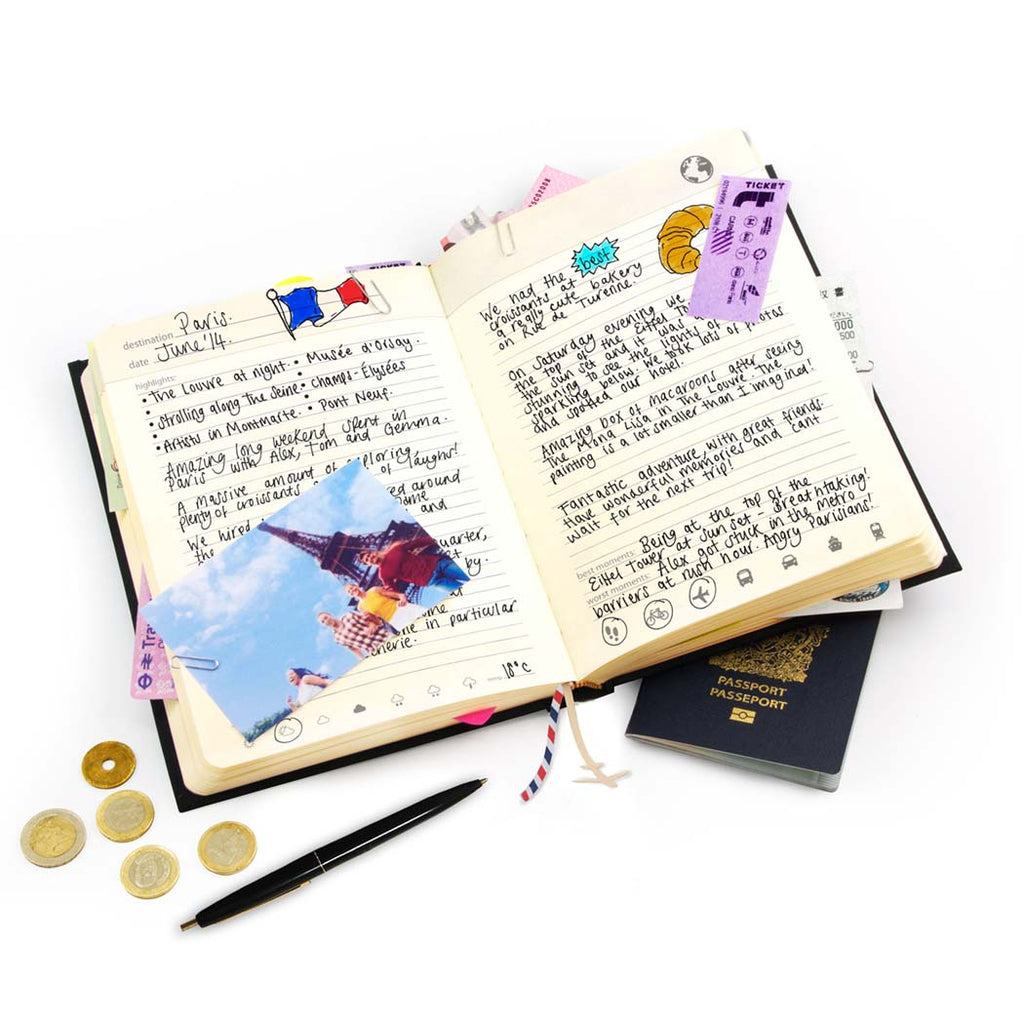 destination Paris.
date June '14.
highlights:
• The Louvre at night. • Musée d'Orsay.
• Strolling along the Seine. • Champs-Élysées
• Artists in Montmarte. • Pont Neuf.
Amazing long weekend spent in
Paris with Alex, Tom and Gemma.
A massive amount of exploring,
plenty of croissants of laughs!
We hired around
the and
quarter,
by.
in particular
temp 18°C
We had the best
croissants at
a really cute bakery
on Rue de Turenne.
On Saturday evening we
the top of the Eiffel
the sun set and it was
stunning to see the lights of
sparkling below. We took lots of photos
and spotted our hotel.
Amazing box of macaroons after seeing
the Mona Lisa in the Louvre. The
painting is a lot smaller than I imagined!
Fantastic adventure with great friends.
Have wonderful memories and cant
wait for the next trip!
best moments: Being at the top of the
Eiffel Tower at sun set - Breathtaking!
worst moments: Alex got stuck in the metro
barriers at rush hour. Angry Parisians!
TICKET
TICKET
PASSPORT
PASSEPORT